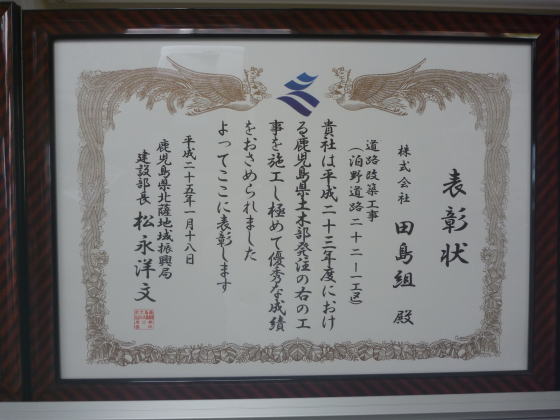 表彰状
株式会社 田島組 殿
道路改築工事
(泊野道路二十二―一工区)
貴社は平成二十三年度におけ
る鹿児島県土木部発注の右の工
事を施工し極めて優秀な成績
をおさめられました
よってここに表彰します
平成二十五年一月十八日
鹿児島県北薩地域振興局
建設部長 松永洋文